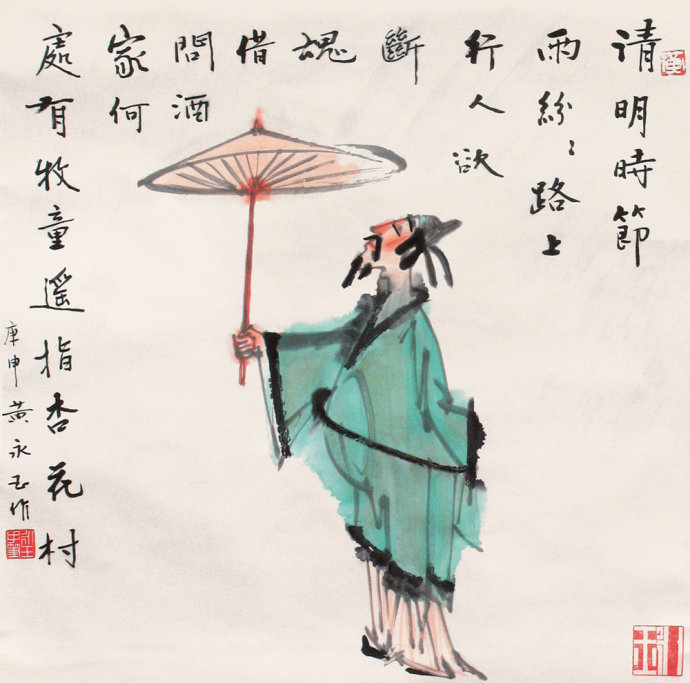 清明時節
雨紛〻路上
行人欲
斷
魂
借
問酒
家何
處有牧童遥指杏花村
庚申黄永玉作